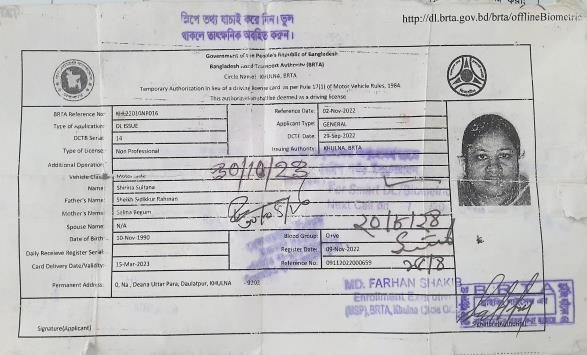 স্লিপে তথ্য যাচাই করে নিন। ভুল
থাকলে তাৎক্ষনিক অবহিত করুন।
http://dl.brta.gov.bd/brta/offlineBiometric
Government of the People's Republic of Bangladesh
Bangladesh Road Transport Authority (BRTA)
Circle Name: KHULNA, BRTA
Temporary Authorization in lieu of a driving license card as per Rule 17(1) of Motor Vehicle Rules, 1984.
This authorization shall be deemed as a driving license
BRTA Reference No:
Reference Date: 02-Nov-2022
Type of Application: DL ISSUE
Applicant Type: GENERAL
DCTB Serial: 14
DCTE Date: 29-Sep-2022
Type of License: Non Professional
Issuing Authority: KHULNA, BRTA
Additional Operation:
Vehicle Class: Motorcycle
30/10/23
Name: Shirina Sultana
Father's Name: Sheikh Sidikkur Rahman
Mother's Name: Selina Begum
Spouse Name: N/A
20/5/28
Date of Birth: 10-Nov-1990
Blood Group: O+ve
Daily Receieve Register Serial:
Register Date: 09-Nov-2022
Card Delivery Date/Validity: 15-Mar-2023
Reference No: 09112022000659
26/8
Permanent Address: 0, Na , Deana Uttar Para, Daulatpur, KHULNA - 9202
MD. FARHAN SHAKIB
(MSP), BRTA, Khulna Circle
BRTA
Signature(Applicant)